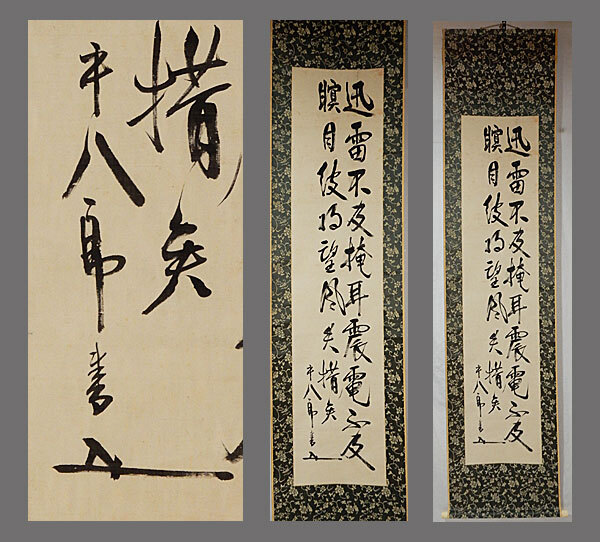 措矣
平八郎書
迅雷不及掩耳震電不及
瞑目彼将望風失措矣
平八郎書
迅雷不及掩耳震電不及
瞑目彼将望風失措矣
平八郎書